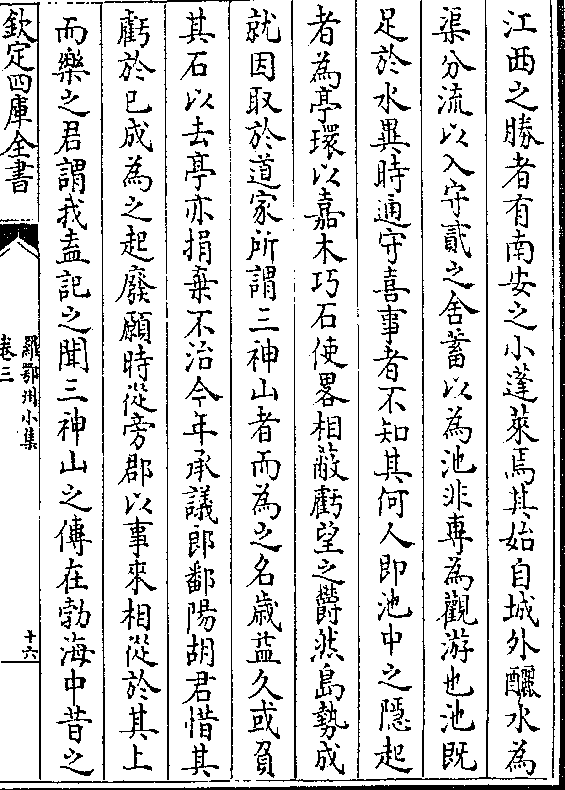 江西之勝者有南安之小蓬萊焉其始自城外釃水為
渠分流以入守貳之舍蓄以為池非專為觀游也池既
足於水異時通守喜事者不知其何人即池中之隱起
者為亭環以嘉木巧石使畧相蔽虧望之欝然島勢成
就因取於道家所謂三神山者而為之名歳益久或負
其石以去亭亦捐棄不治今年承議郎鄱陽胡君惜其
虧於已成為之起廢願時從旁郡以事來相從於其上
而樂之君謂我盍記之聞三神山之傳在勃海中昔之
欽定四庫全書
羅鄂州小集
卷三
十六